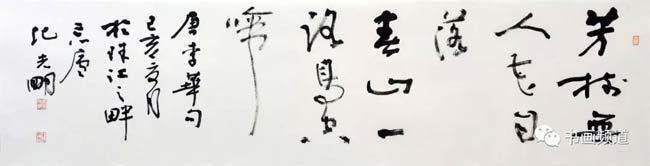 芳树无
人花自
落
春山一
路鸟空
啼
唐李华句
己亥夏月
于珠江之畔
纪光明
书画频道